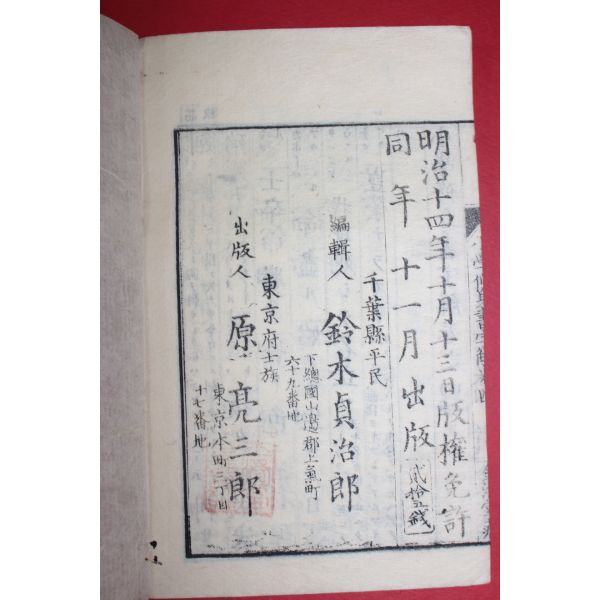 明治十四年十月十三日版權免許
同年十一月出版
貳拾五錢
千葉縣平民
編輯人 鈴木貞治郎
下總國山邊郡上
六十九番地
東京府士族
出版人 原亮三郎
東京本町三丁目
十七番地